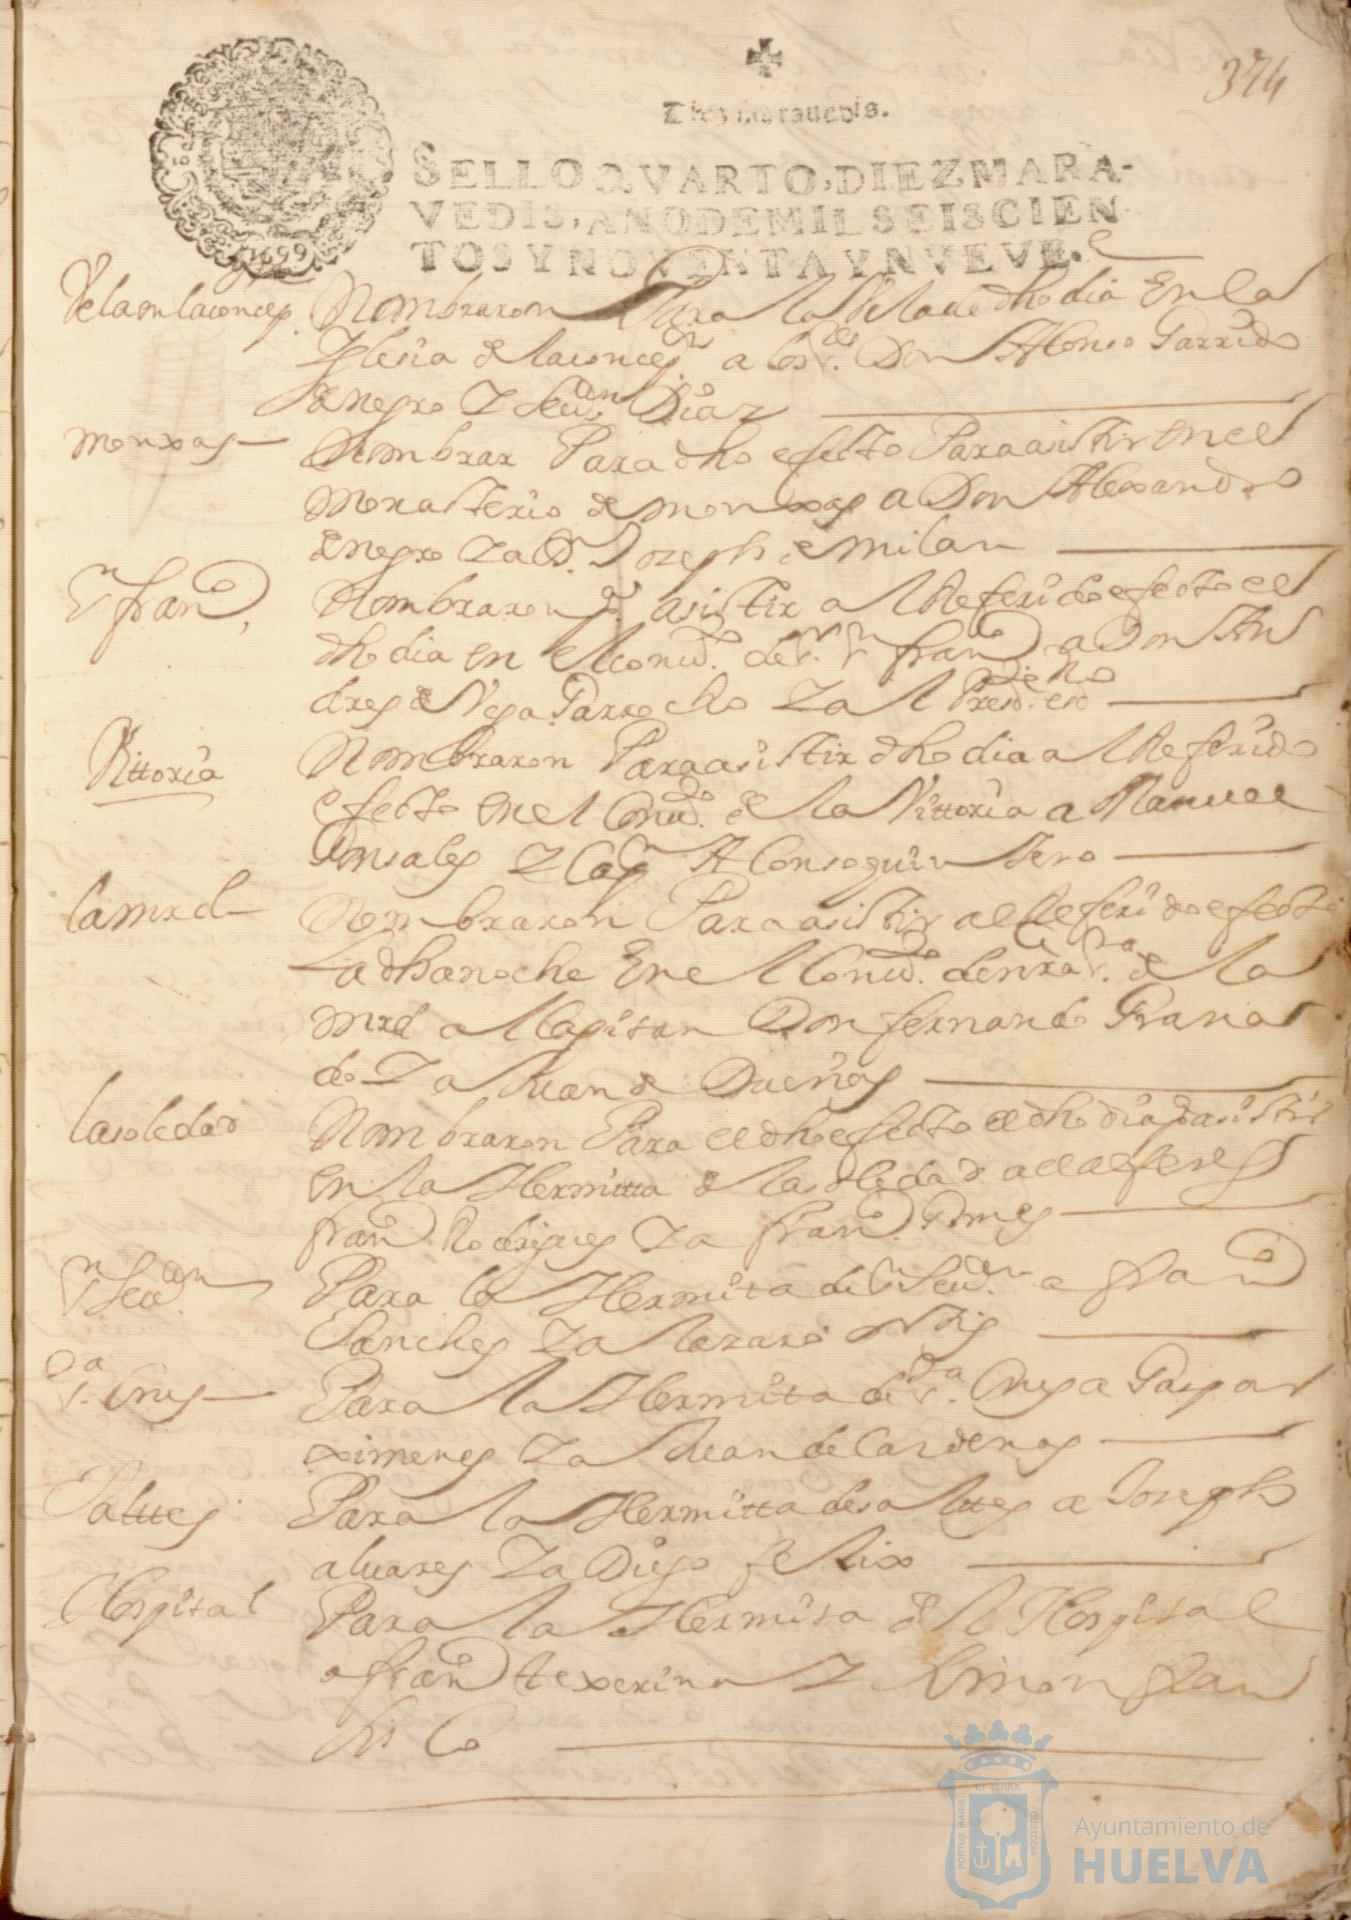 374
Diez marauedis.
SELLO QVARTO, DIEZ MARA-
VEDIS, AÑO DE MIL SEISCIEN
TOS Y NOVENTA Y NVEVE.
1699
Vela en la concepn
Nombraron Para la Vela de dho dia En la
Yglesia de la concepn a los sres Don Alonso Garrido
de negro y Seuan Diaz
monxas
Nombrar Para dho efecto Para asistir en el
monasterio de monxas a Don Alexandro
de negro y a Dn Joseph de milan
Sn franco
Nombraron pa asistir a l Referido efecto el
dho dia en el conuto de sr Sn franco a Don An
dres de Vega Parrocho y a l
Vittoria
Nombraron Para asistir dho dia a l Referido
efecto en el Conuto de la Vittoria a Manuel
Gonsales y Capn Alonso quintero
la mrd
Nombraron Para asistir al Referido efecto
la dha noche En el Conuto de nra sra de la
mrd a l Capitan Don fernando Grana
do y a Juan de Dueñas
la soledad
Nombraron Para el dho efecto el dho dia pa asistir
en la Hermitta de la soledad a el alferes
franco Rodrigues y a franco Gomes
Sn Seuan
Para la Hermita de Sn Seuan a franco
Sanches y a lazaro
Sta Crus
Para la Hermita de Sta Crus a Gaspar
ximenes y a Juan de Cardenas
Salttes
Para la Hermitta de salttes a Joseph
aluares y a Diego felix
Hospital
Para la Hermita de l Hospital
a franco texerina y Simon fran
sisco
PORTUS MARIS ET TERRÆ CUSTODIA
Ayuntamiento de
HUELVA